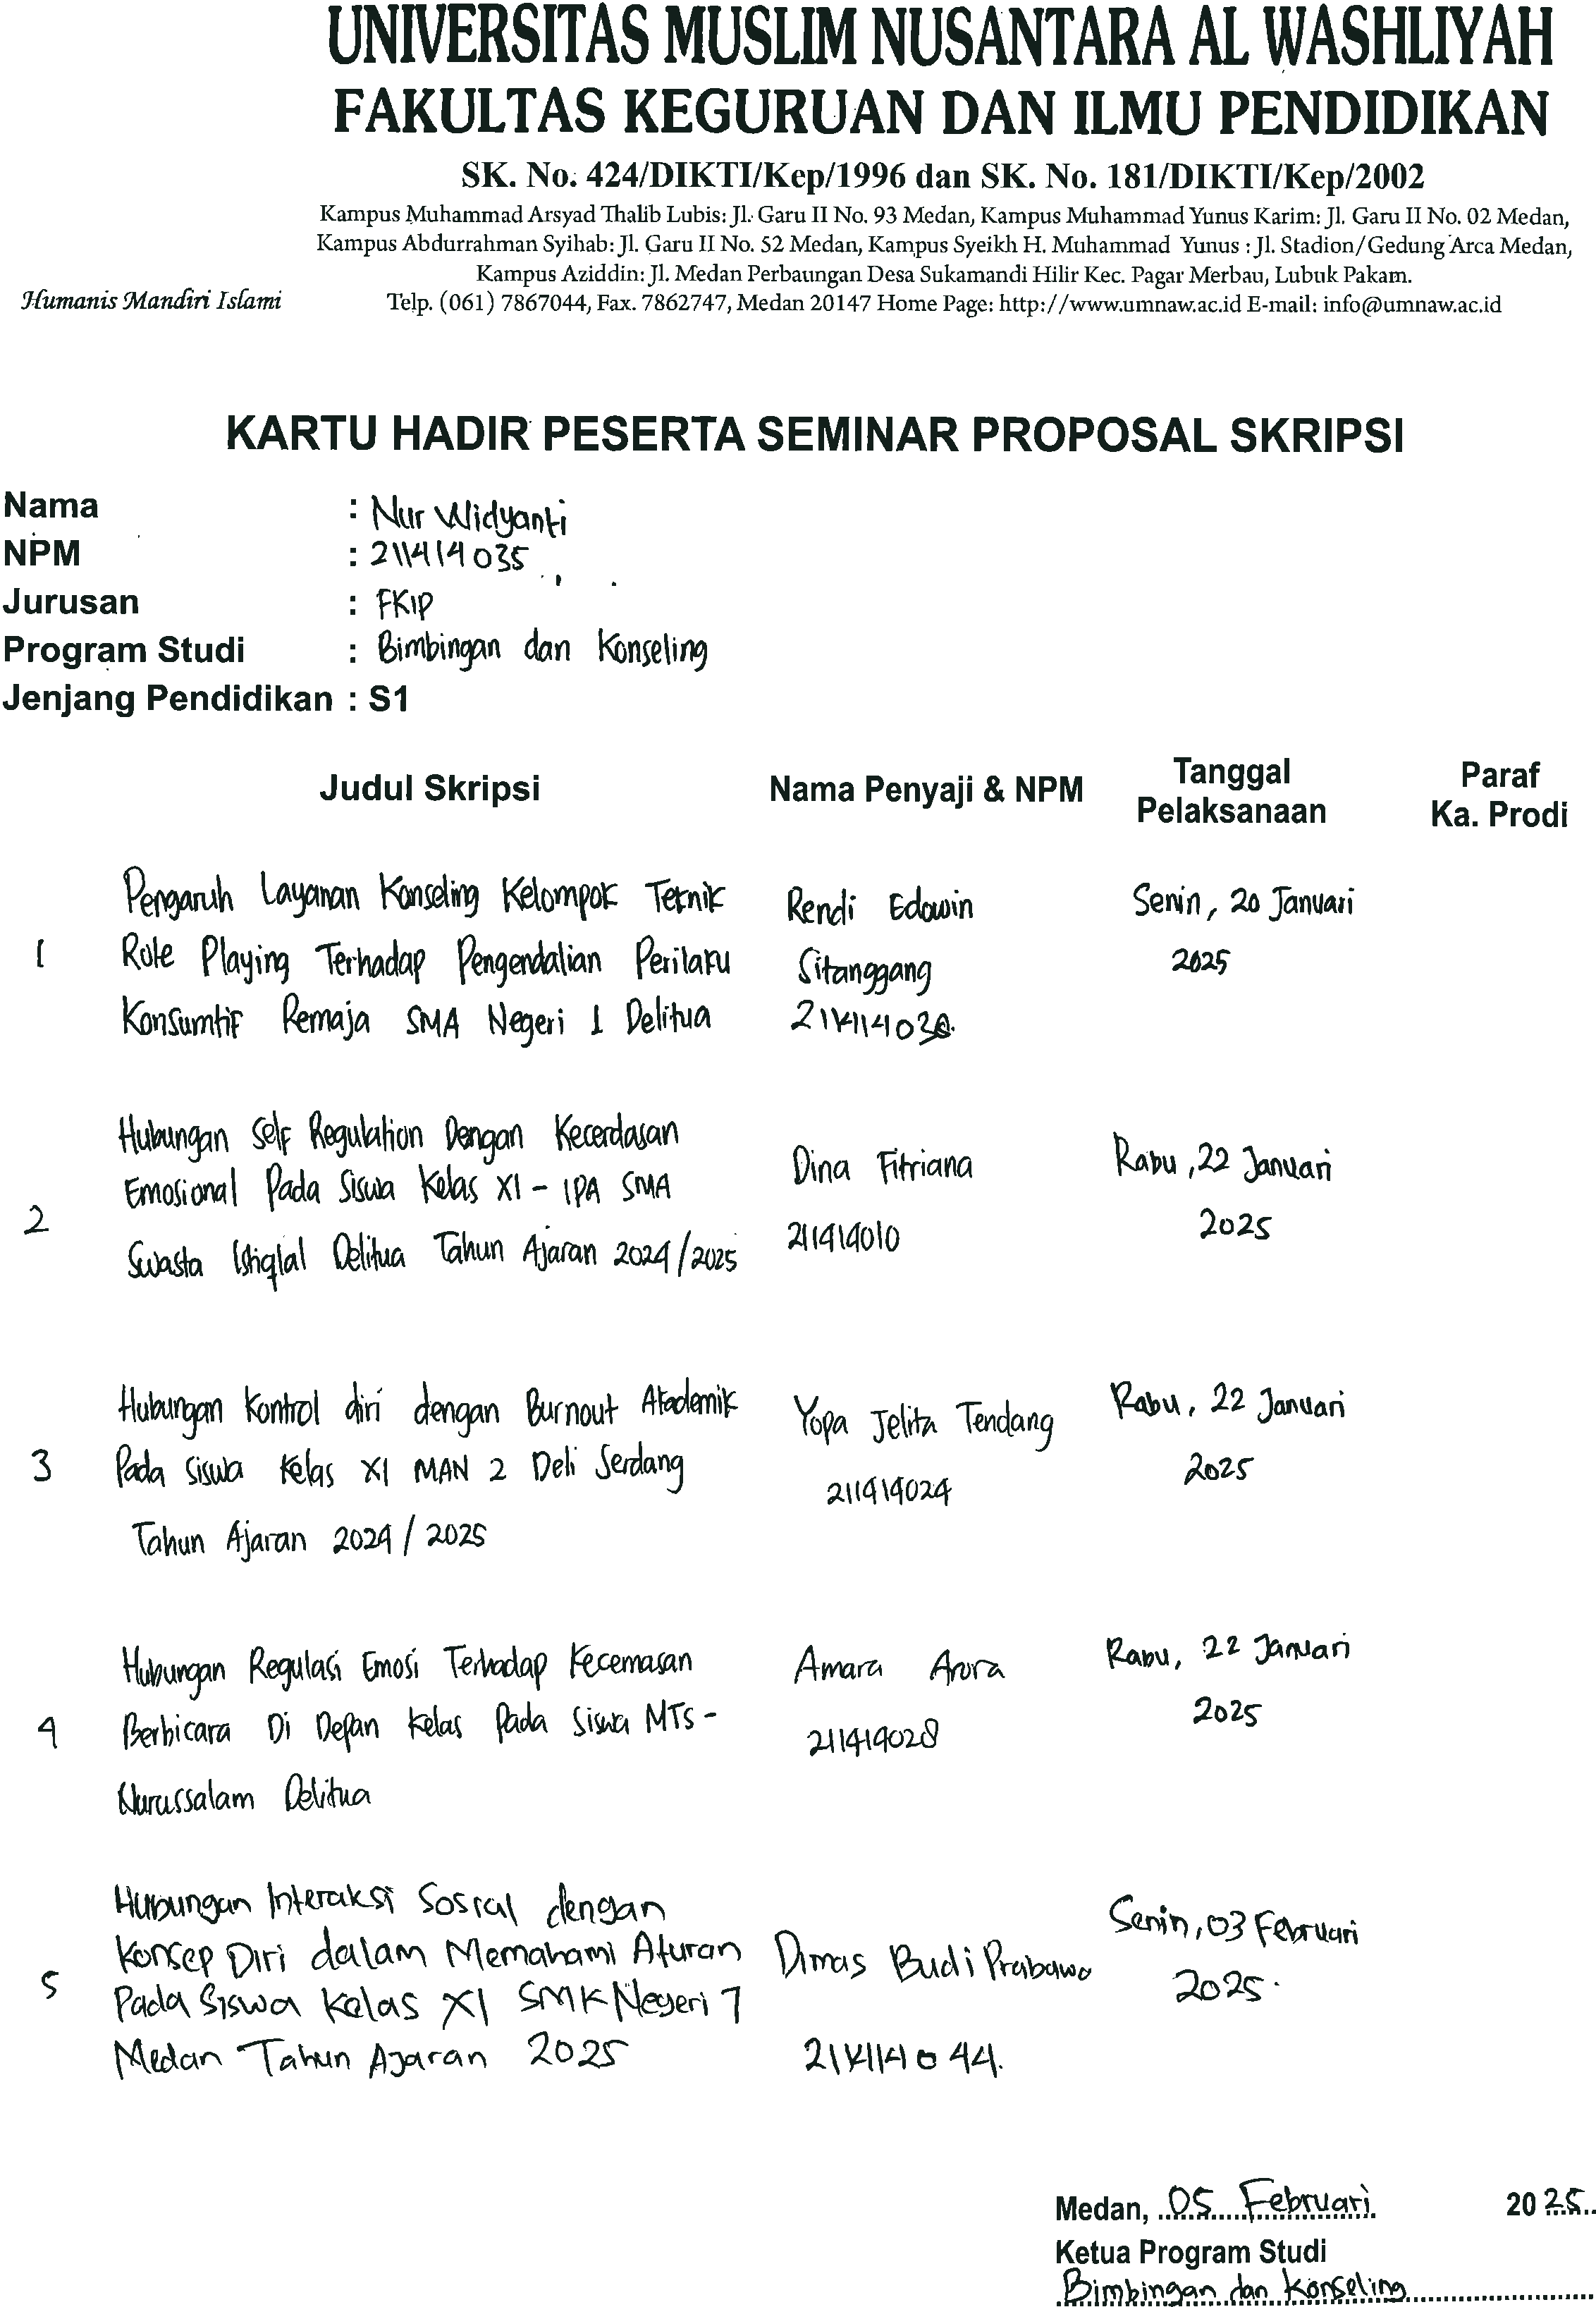 UNIVERSITAS MUSLIM NUSANTARA AL WASHLIYAH
FAKULTAS KEGURUAN DAN ILMU PENDIDIKAN
SK. No. 424/DIKTI/Kep/1996 dan SK. No. 181/DIKTI/Kep/2002
Kampus Muhammad Arsyad Thalib Lubis: Jl. Garu II No. 93 Medan, Kampus Muhammad Yunus Karim: Jl. Garu II No. 02 Medan,
Kampus Abdurrahman Syihab: Jl. Garu II No. 52 Medan, Kampus Syeikh H. Muhammad Yunus : Jl. Stadion/Gedung Arca Medan,
Kampus Aziddin: Jl. Medan Perbaungan Desa Sukamandi Hilir Kec. Pagar Merbau, Lubuk Pakam.
Humanis Mandiri Islami Telp. (061) 7867044, Fax. 7862747, Medan 20147 Home Page: http://www.umnaw.ac.id E-mail: info@umnaw.ac.id
KARTU HADIR PESERTA SEMINAR PROPOSAL SKRIPSI
Nama : Nur Widyanti
NPM : 211414035
Jurusan : FKIP
Program Studi : Bimbingan dan Konseling
Jenjang Pendidikan : S1
Judul Skripsi Nama Penyaji & NPM Tanggal Pelaksanaan Paraf Ka. Prodi
1
Pengaruh Layanan Konseling Kelompok Teknik
Role Playing Terhadap Pengendalian Perilaku
Konsumtif Remaja SMA Negeri 1 Delitua
Rendi Edowin
Sitanggang
Senin, 20 Januari
2025
2
Hubungan Self Regulation Dengan Kecerdasan
Emosional Pada Siswa Kelas XI - IPA SMA
Swasta Istiqlal Delitua Tahun Ajaran 2024/2025
Dina Fitriana
211414010
Rabu, 22 Januari
2025
3
Hubungan Kontrol diri dengan Burnout Akademik
Pada Siswa Kelas XI MAN 2 Deli Serdang
Tahun Ajaran 2024 / 2025
Yopa Jelita Tendang
211414024
Rabu, 22 Januari
2025
4
Hubungan Regulasi Emosi Terhadap Kecemasan
Berbicara Di Depan Kelas Pada Siswa MTs -
Nurussalam Delitua
Amara Arora
211414028
Rabu, 22 Januari
2025
5
Hubungan Interaksi Sosial dengan
Konsep Diri dalam Memahami Aturan
Pada Siswa Kelas XI SMK Negeri 7
Medan Tahun Ajaran 2025
Dimas Budi Prabowo
211414044.
Senin, 03 Februari
2025.
Medan, 05 Februari 2025
Ketua Program Studi
Bimbingan dan Konseling